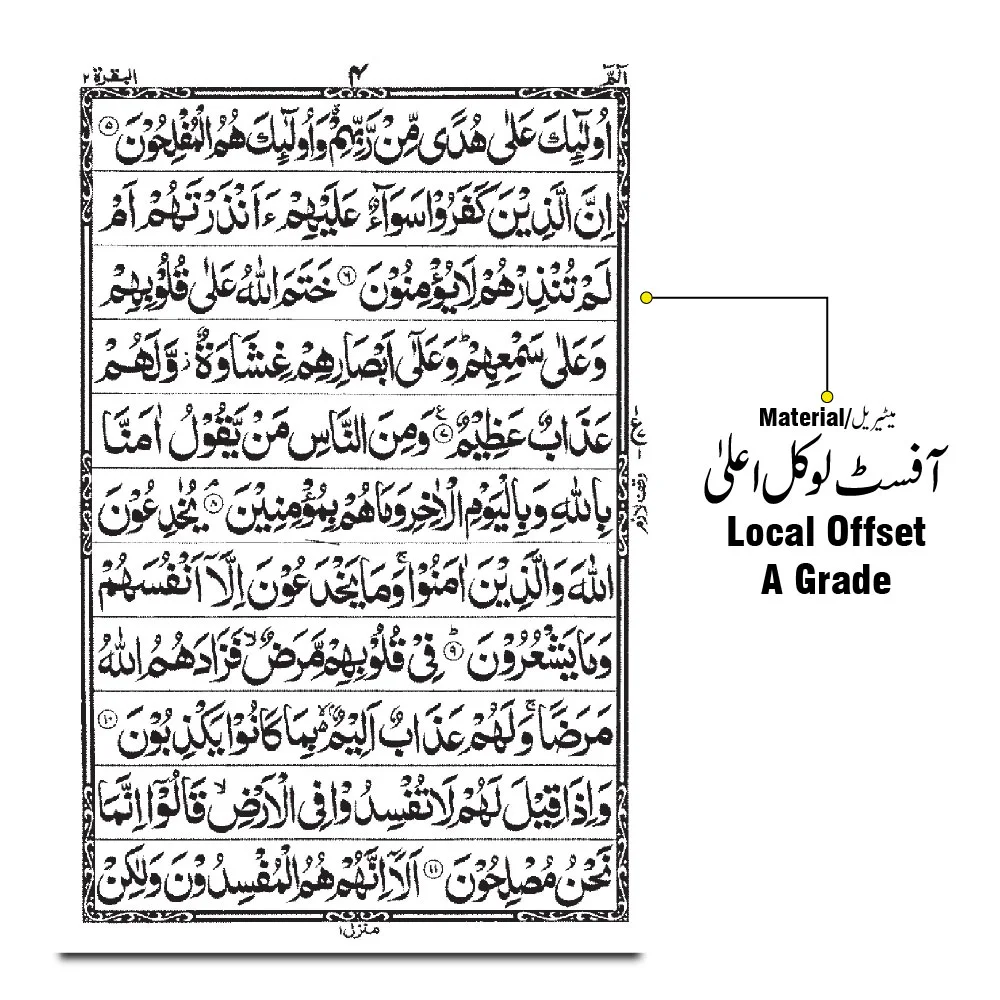 الٓمّٓ ۴ البقرة ۲
اُولٰٓئِكَ عَلٰى هُدًى مِّنْ رَّبِّهِمْ ۙ وَاُولٰٓئِكَ هُمُ الْمُفْلِحُوْنَ ۵
اِنَّ الَّذِيْنَ كَفَرُوْا سَوَآءٌ عَلَيْهِمْ ءَاَنْذَرْتَهُمْ اَمْ
لَمْ تُنْذِرْهُمْ لَا يُؤْمِنُوْنَ ۶ خَتَمَ اللّٰهُ عَلٰى قُلُوْبِهِمْ
وَعَلٰى سَمْعِهِمْ ؕ وَعَلٰٓى اَبْصَارِهِمْ غِشَاوَةٌ ۫ وَّلَهُمْ
عَذَابٌ عَظِيْمٌ ۷ ع وَمِنَ النَّاسِ مَنْ يَّقُوْلُ اٰمَنَّا
بِاللّٰهِ وَبِالْيَوْمِ الْاٰخِرِ وَمَا هُمْ بِمُؤْمِنِيْنَ ۘ ۸ يُخٰدِعُوْنَ
اللّٰهَ وَالَّذِيْنَ اٰمَنُوْا ۚ وَمَا يَخْدَعُوْنَ اِلَّآ اَنْفُسَهُمْ
وَمَا يَشْعُرُوْنَ ؕ ۹ فِىْ قُلُوْبِهِمْ مَّرَضٌ ۙ فَزَادَهُمُ اللّٰهُ
مَرَضًا ۚ وَلَهُمْ عَذَابٌ اَلِيْمٌ ۙ بِمَا كَانُوْا يَكْذِبُوْنَ ۱۰
وَاِذَا قِيْلَ لَهُمْ لَا تُفْسِدُوْا فِى الْاَرْضِ ۙ قَالُوْٓا اِنَّمَا
نَحْنُ مُصْلِحُوْنَ ۱۱ اَلَآ اِنَّهُمْ هُمُ الْمُفْسِدُوْنَ وَلٰكِنْ
منزل ۱
وقف لازم
Material/میٹیریل
آفسٹ لوکل اعلیٰ
Local Offset
A Grade